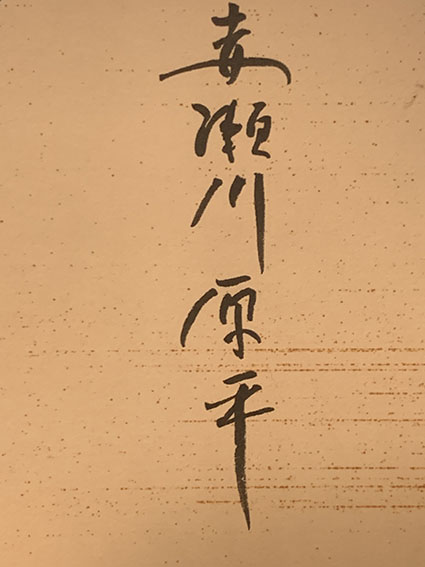 赤瀬川原平